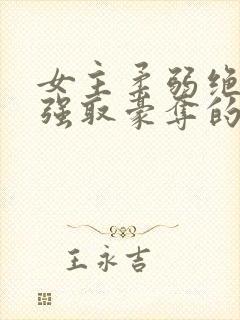 女主柔弱绝
强取豪夺的
王永吉